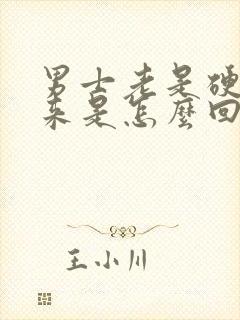 男士老是硬
来是怎麼回
王小川